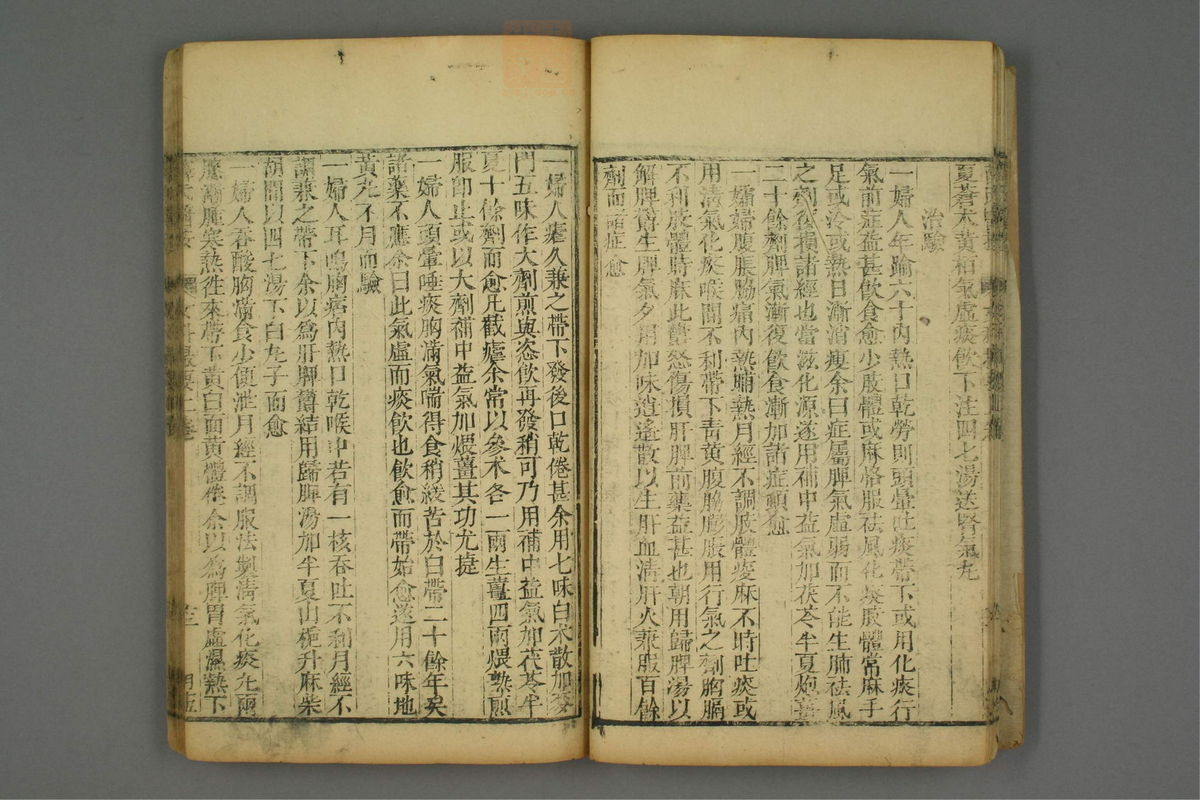 夏蒼朮黃柏氣虛痰飲下注四七湯送腎氣丸
治驗
一婦人年踰六十內熱口乾勞則頭暈吐痰帶下或用化痰行
氣前症益甚飲食愈少肢體或麻恪服祛風化痰肢體常麻手
足或冷或熱日漸消瘦余曰症屬脾氣虛弱而不能生肺祛風
之劑復損諸經也當滋化源遂用補中益氣加茯苓半夏炮薑
二十餘劑脾氣漸復飲食漸加諸症頓愈
一孀婦腹脹脇痛內熱晡熱月經不調肢體痠麻不時吐痰或
用清氣化痰喉間不利帶下青黃腹脇膨脹用行氣之劑胸膈
不利肢體時麻此鬱怒傷損肝脾前藥益甚也朝用歸脾湯以
解脾鬱生脾氣夕用加味逍遙散以生肝血清肝火兼服百餘
劑而諸症愈
一婦人瘧久兼之帶下發後口乾倦甚余用七味白朮散加麥
門五味作大劑煎與恣飲再發稍可乃用補中益氣加茯苓半
夏十餘劑而愈凡截瘧余常以參朮各一兩生薑四兩煨熟煎
服卽止或以大劑補中益氣加煨薑其功尤捷
一婦人頭暈唾痰胸滿氣喘得食稍緩苦於白帶二十餘年矣
諸藥不應余曰此氣虛而痰飲也飲愈而帶始愈遂用六味地
黃丸不月而驗
一婦人耳鳴胸痞內熱口乾喉中若有一核吞吐不利月經不
調兼之帶下余以爲肝脾鬱結用歸脾湯加半夏山梔升麻柴
胡間以四七湯下白丸子而愈
一婦人吞酸胸滿食少便泄月經不調服法製清氣化痰丸兩
膝漸腫寒熱徃來帶下黃白面黃體倦余以爲脾胃虛濕熱下